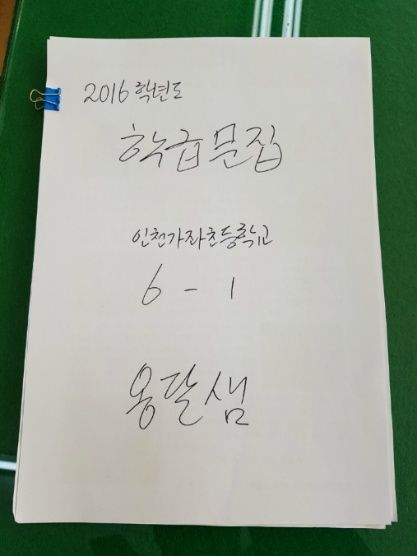 2016 학년도
학급문집
인천가좌초등학교
6 - 1
옹달샘